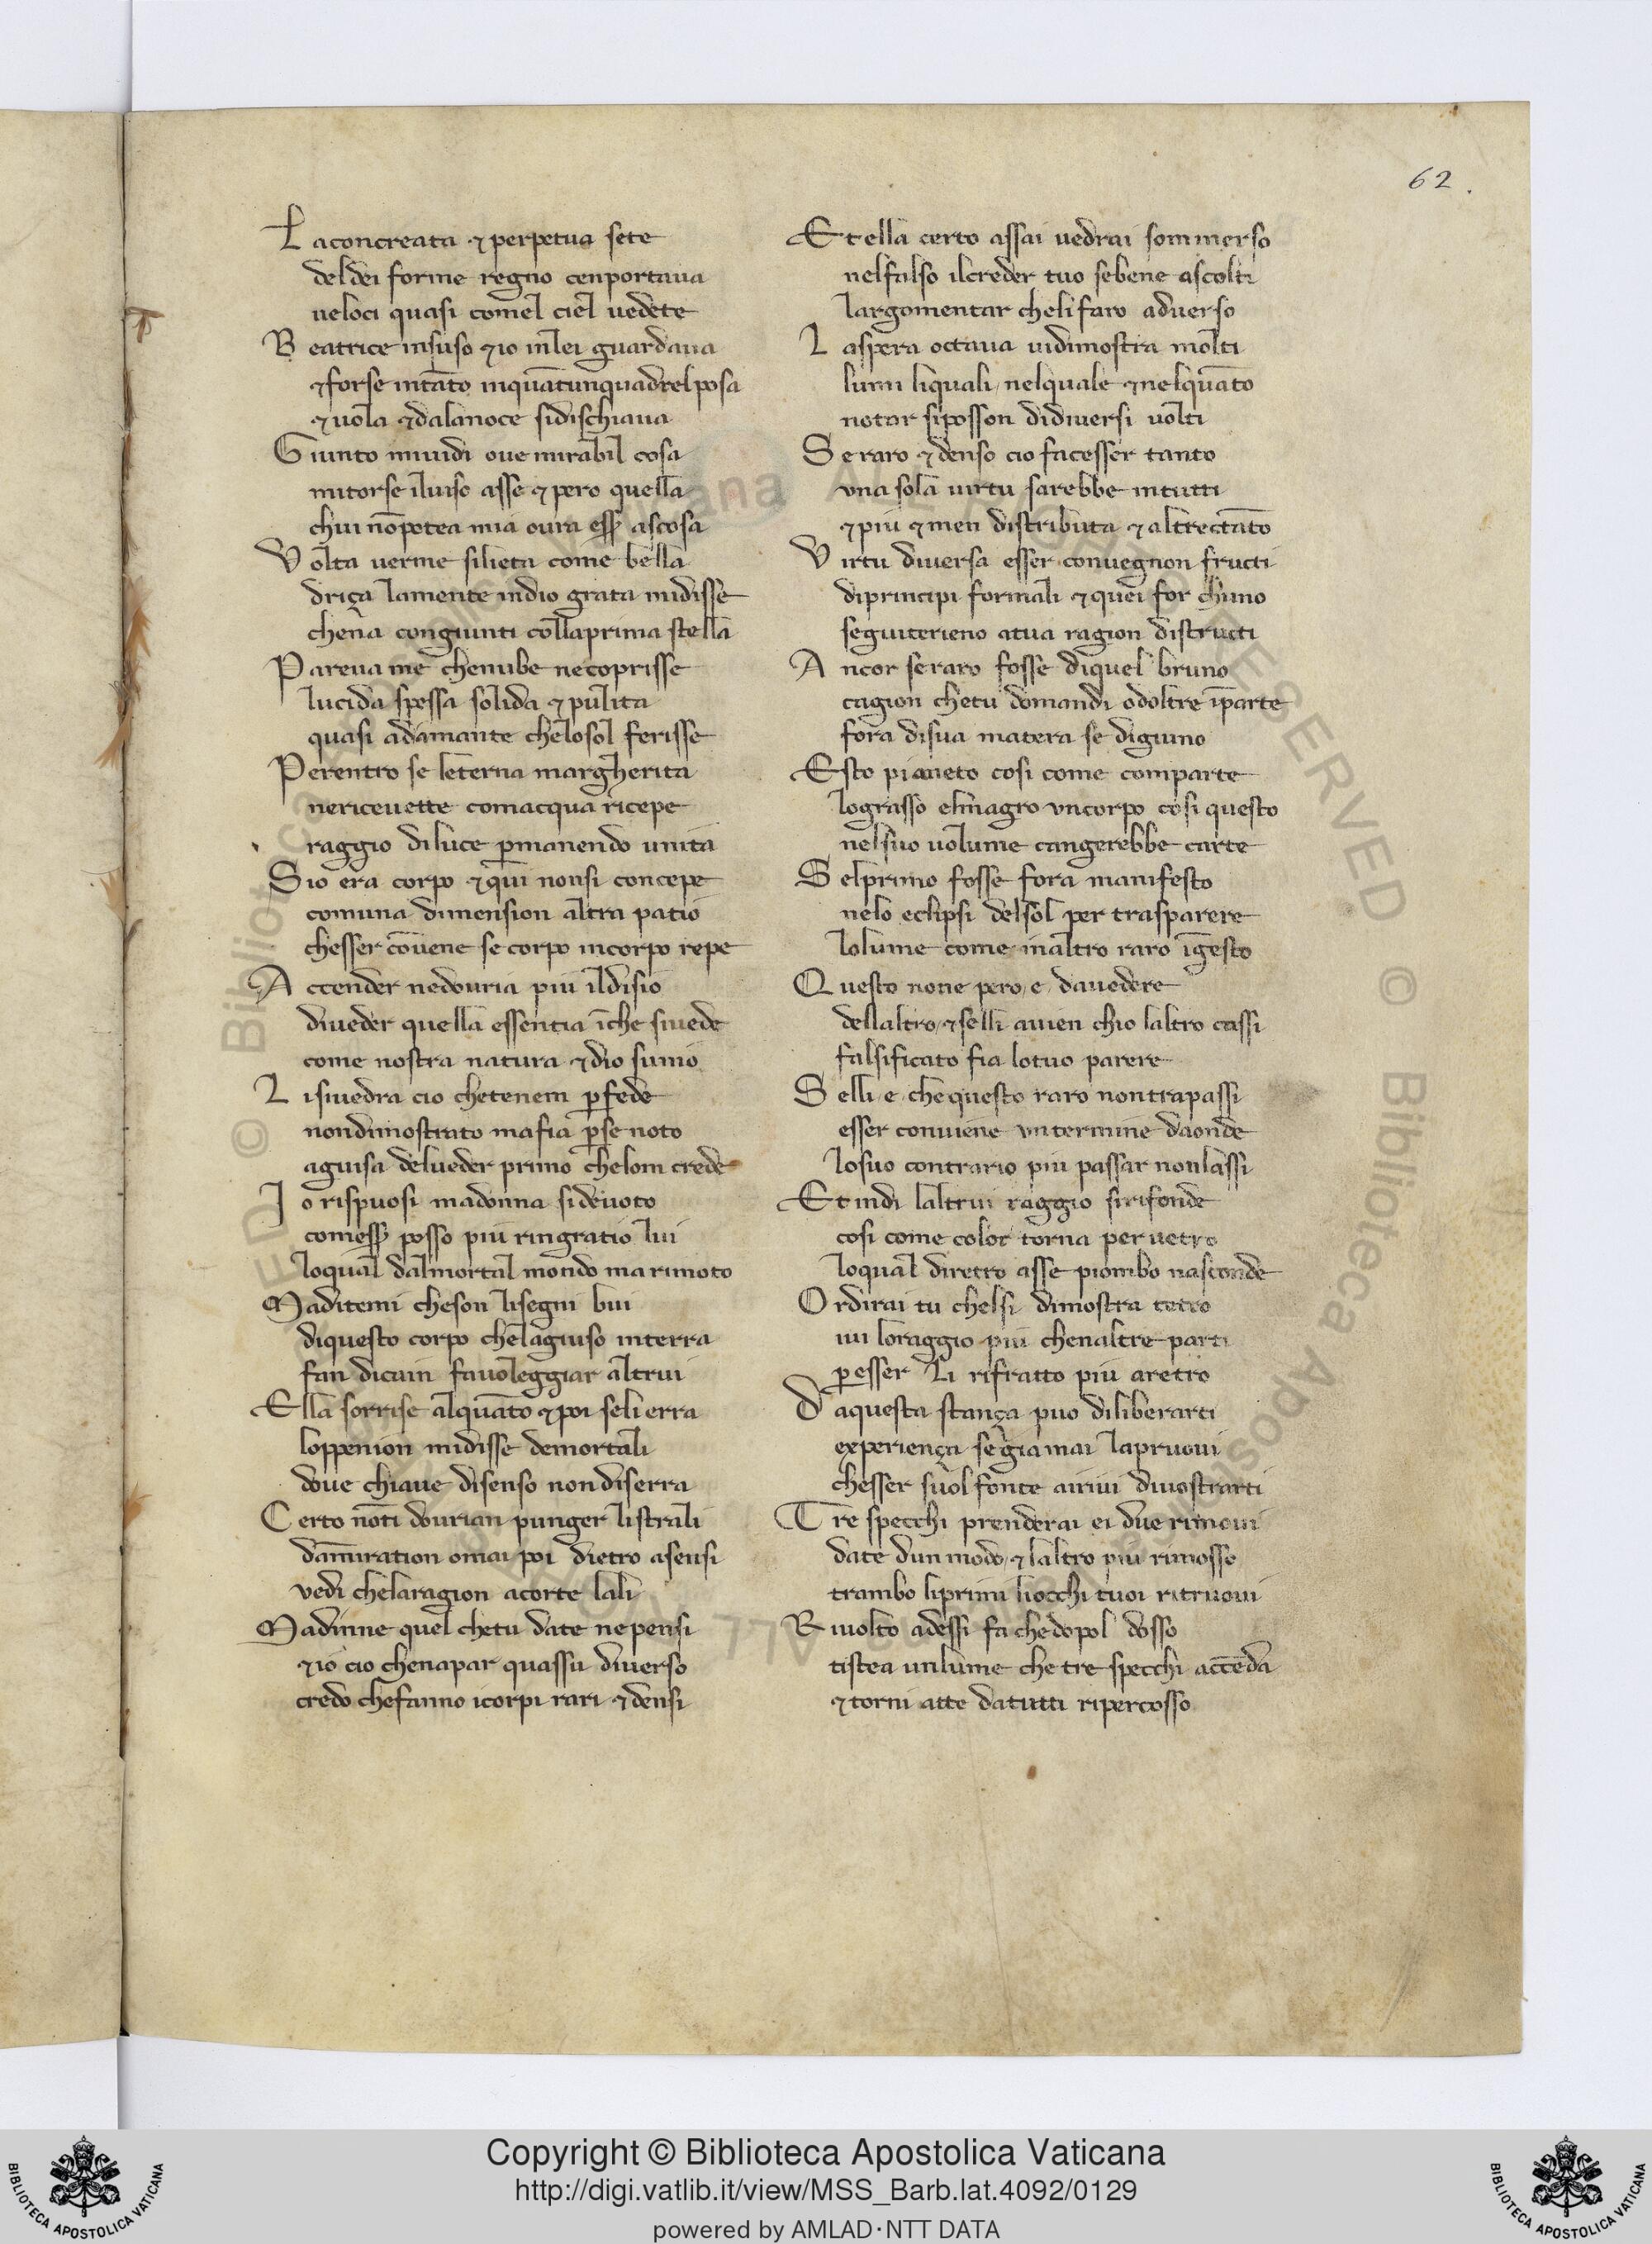 62.
La concreata & perpetua sete
deldei forme regno cenportaua
ueloci quasi comel ciel uedete
Beatrice insuso & io inlei guardaua
& forse intāto inquātunquadrel posa
& uola & dalanoce sidischiaua
Giunto miuidi oue mirabil cosa
mitorse iluiso asse & pero quella
chui nōpotea mia oura eſſ ascosa
Volta uerme silieta come bella
driça lamente indio grata midisse
chena congiunti collaprima stella
Pareua me chenube necoprisse
lucida spessa solida & pulita
quasi adamante chelosol ferisse
Perentro se leterna margherita
nericeuette comacqua ricepe
raggio diluce pmanendo unita
Sio era corpo & qui nonsi concepe
comuna dimension altra patio
chesser cōuene se corpo incorpo repe
Accender nedouria piu ildisio
diueder quella essentia īche siuede
come nostra natura & dio sunio
Lisiuedra cio chetenem pfede
nondimostrato mafia pse noto
aguisa delueder primo chelom crede
Io rispuosi madonna sideuoto
comeſſ posso piu ringratio lui
loqual dalmortal mondo ma rimoto
Maditemi cheson lisegni bui
diquesto corpo chelagiuso interra
fan dicain fauoleggiar altrui
Ella sorrise alquāto & poi seli erra
loppenion midisse demortali
doue chiaue disenso nondiserra
Certo nōti dourian punger listrali
dāmiration omai poi dietro asensi
vedi chelaragion acorte lali
Madimme quel chetu date nepensi
& io cio chenapar quassu diuerso
credo chefanno icorpi rari & densi
Et ella certo assai uedrai sommerso
nelfalso ilcreder tuo sebene ascolti
largomentar chelifaro aduerso
Laspera octaua uidimostra molti
lumi liquali nelquale & nelquāto
notar siposson didiuersi uolti
Se raro & denso cio facesser tanto
vna sola uirtu sarebbe intutti
& piu & men distributa & altrectāto
Virtu diuersa esser conuegnon fructi
diprincipi formali & quei for chuno
seguiterieno atua ragion distructi
Ancor seraro fosse diquel bruno
cagion chetu domandi odoltre īparte
fora disua matera se digiuno
Esto pianeto cosi come comparte
lograsso elmagro vncorpo cosi questo
nelsuo uolume cangerebbe carte
Selprimo fosse fora manifesto
nelo eclipsi delsol per trasparere
lolume come inaltro raro īgesto
Questo none pero e dauedere
dellaltro & selli auien chio laltro cassi
falsificato fia lotuo parere
Selli e chequesto raro nontrapassi
esser conuiene vntermine daonde
losuo contrario piu passar nonlassi
Et indi laltrui raggio sirifonde
cosi come color torna per uetro
loqual diretro asse piombo nasconde
Ordirai tu chelsi dimostra tetro
iui loraggio piu chenaltre parti
pesser li rifratto piu aretro
Daquesta stança puo diliberarti
experiença se giamai lapruoui
chesser suol fonte airiui diuostrarti
Tre specchi prenderai ei due rimoui
date dun modo & laltro piu rimosso
trambo liprimi liocchi tuoi ritruoui
Riuolto adessi fa chedopol dosso
tistea unlume che tre specchi accēda
& torni atte datutti ripercosso
Copyright © Biblioteca Apostolica Vaticana
http://digi.vatlib.it/view/MSS_Barb.lat.4092/0129
powered by AMLAD·NTT DATA